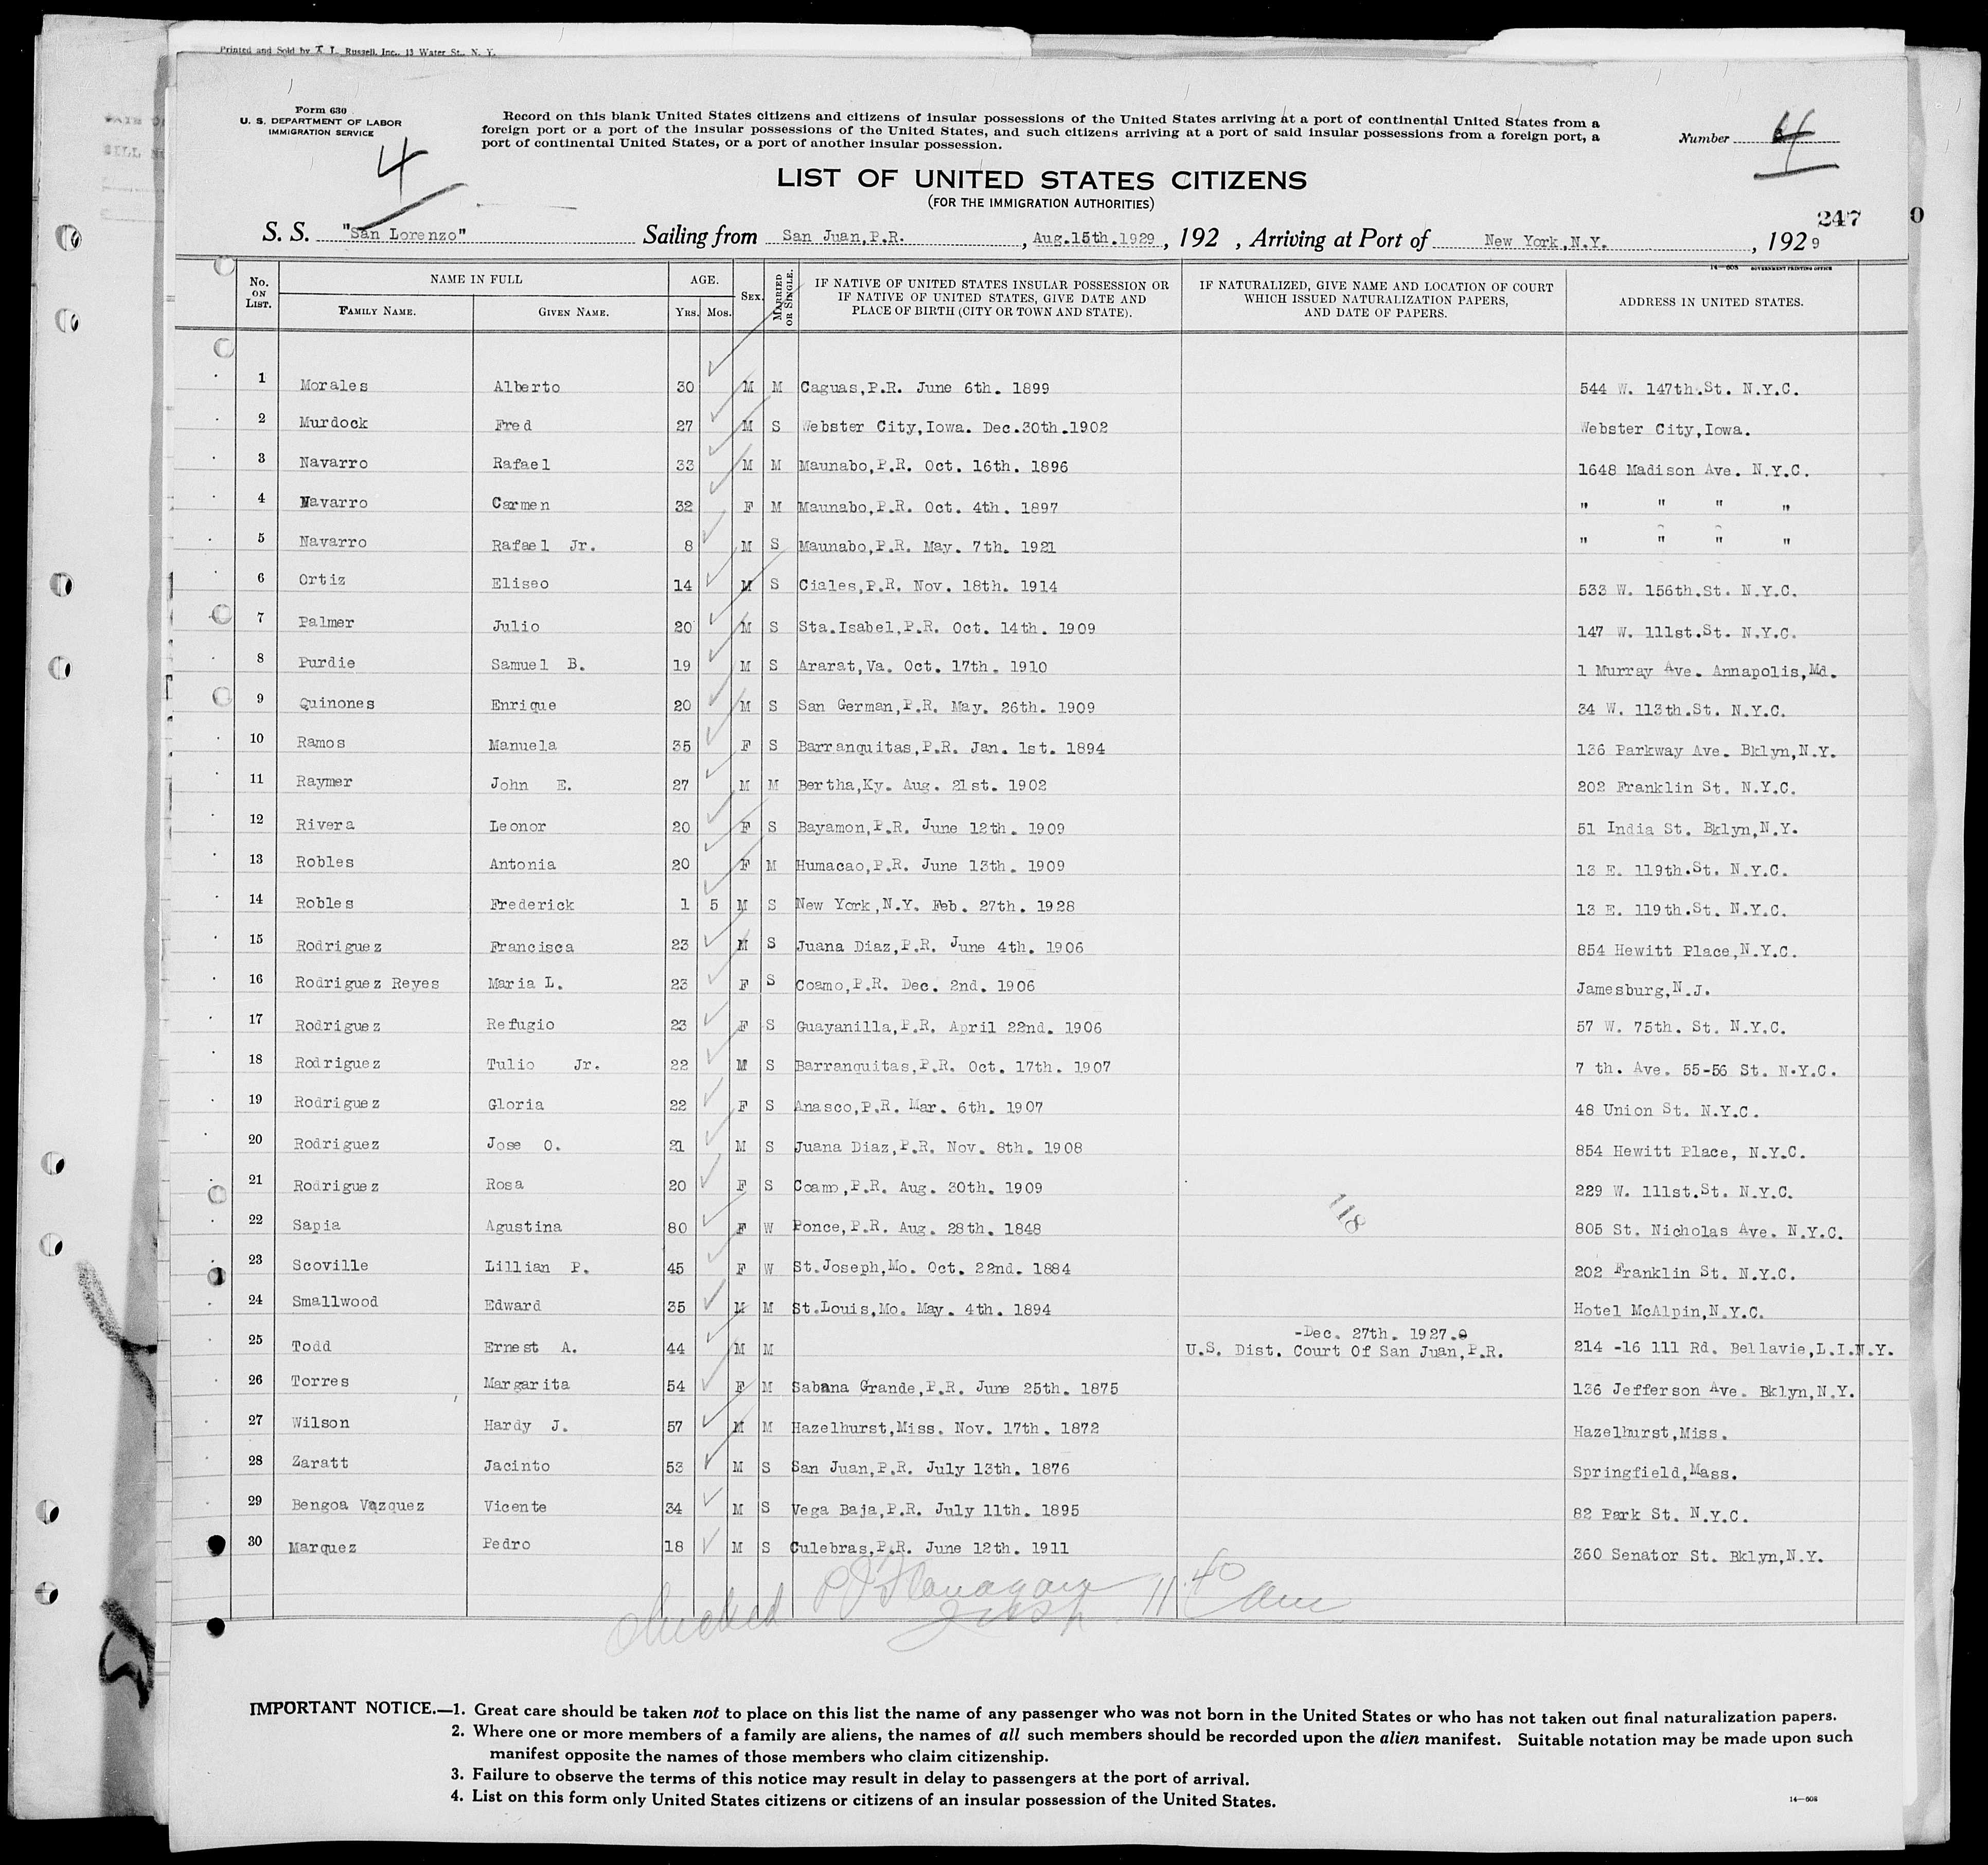 Printed and Sold by T. L. Russell, Inc., 13 Water St., N. Y.
Form 630
U. S. DEPARTMENT OF LABOR
IMMIGRATION SERVICE
4
Record on this blank United States citizens and citizens of insular possessions of the United States arriving at a port of continental United States from a
foreign port or a port of the insular possessions of the United States, and such citizens arriving at a port of said insular possessions from a foreign port, a
port of continental United States, or a port of another insular possession.
Number 4
LIST OF UNITED STATES CITIZENS
(FOR THE IMMIGRATION AUTHORITIES)
247
0
S. S. "San Lorenzo" Sailing from San Juan,P.R. , Aug.15th.1929 , 192 , Arriving at Port of New York,N.Y. , 192 9
14—608 GOVERNMENT PRINTING OFFICE
No. ON LIST. NAME IN FULL FAMILY NAME. GIVEN NAME. AGE. YRS. MOS. SEX. MARRIED OR SINGLE. IF NATIVE OF UNITED STATES INSULAR POSSESSION OR IF NATIVE OF UNITED STATES, GIVE DATE AND PLACE OF BIRTH (CITY OR TOWN AND STATE). IF NATURALIZED, GIVE NAME AND LOCATION OF COURT WHICH ISSUED NATURALIZATION PAPERS, AND DATE OF PAPERS. ADDRESS IN UNITED STATES.
1 Morales Alberto 30 M M Caguas,P.R. June 6th. 1899 544 W. 147th.St. N.Y.C.
2 Murdock Fred 27 M S Webster City,Iowa. Dec.30th.1902 Webster City,Iowa.
3 Navarro Rafael 33 M M Maunabo,P.R. Oct. 16th. 1896 1648 Madison Ave. N.Y.C.
4 Navarro Carmen 32 F M Maunabo,P.R. Oct. 4th. 1897 " " " "
5 Navarro Rafael Jr. 8 M S Maunabo,P.R. May. 7th. 1921 " " " "
6 Ortiz Eliseo 14 M S Ciales,P.R. Nov. 18th. 1914 533 W. 156th.St. N.Y.C.
7 Palmer Julio 20 M S Sta.Isabel,P.R. Oct. 14th. 1909 147 W. 111st.St. N.Y.C.
8 Purdie Samuel B. 19 M S Ararat,Va. Oct. 17th. 1910 1 Murray Ave. Annapolis,Md.
9 Quinones Enrique 20 M S San German,P.R. May. 26th. 1909 34 W. 113th.St. N.Y.C.
10 Ramos Manuela 35 F S Barranquitas,P.R. Jan. 1st. 1894 136 Parkway Ave. Bklyn,N.Y.
11 Raymer John E. 27 M M Bertha,Ky. Aug. 21st. 1902 202 Franklin St. N.Y.C.
12 Rivera Leonor 20 F S Bayamon,P.R. June 12th. 1909 51 India St. Bklyn,N.Y.
13 Robles Antonia 20 F M Humacao,P.R. June 13th. 1909 13 E. 119th.St. N.Y.C.
14 Robles Frederick 1 5 M S New York,N.Y. Feb. 27th. 1928 13 E. 119th.St. N.Y.C.
15 Rodriguez Francisca 23 M S Juana Diaz,P.R. June 4th. 1906 854 Hewitt Place,N.Y.C.
16 Rodriguez Reyes Maria L. 23 F S Coamo,P.R. Dec. 2nd. 1906 Jamesburg,N.J.
17 Rodriguez Refugio 23 F S Guayanilla,P.R. April 22nd. 1906 57 W. 75th. St. N.Y.C.
18 Rodriguez Tulio Jr. 22 M S Barranquitas,P.R. Oct. 17th. 1907 7 th. Ave. 55-56 St. N.Y.C.
19 Rodriguez Gloria 22 F S Anasco,P.R. Mar. 6th. 1907 48 Union St. N.Y.C.
20 Rodriguez Jose O. 21 M S Juana Diaz,P.R. Nov. 8th. 1908 854 Hewitt Place, N.Y.C.
21 Rodriguez Rosa 20 F S Coamo,P.R. Aug. 30th. 1909 229 W. 111st.St. N.Y.C.
118
22 Sapia Agustina 80 F W Ponce,P.R. Aug. 28th. 1848 805 St. Nicholas Ave. N.Y.C.
23 Scoville Lillian P. 45 F W St.Joseph,Mo. Oct. 22nd. 1884 202 Franklin St. N.Y.C.
24 Smallwood Edward 35 M M St.Louis,Mo. May. 4th. 1894 Hotel McAlpin,N.Y.C.
-Dec. 27th. 1927.
25 Todd Ernest A. 44 M M U.S. Dist. Court Of San Juan,P.R. 214 -16 111 Rd. Bellavie,L.I.N.Y.
26 Torres Margarita 54 F M Sabana Grande,P.R. June 25th. 1875 136 Jefferson Ave. Bklyn,N.Y.
27 Wilson Hardy J. 57 M M Hazelhurst,Miss. Nov. 17th. 1872 Hazelhurst,Miss.
28 Zaratt Jacinto 53 M S San Juan,P.R. July 13th. 1876 Springfield,Mass.
29 Bengoa Vazquez Vicente 34 M S Vega Baja,P.R. July 11th. 1895 82 Park St. N.Y.C.
30 Marquez Pedro 18 M S Culebras,P.R. June 12th. 1911 360 Senator St. Bklyn,N.Y.
checked P J Flanagan 11 40 am
IMPORTANT NOTICE.—1. Great care should be taken not to place on this list the name of any passenger who was not born in the United States or who has not taken out final naturalization papers.
2. Where one or more members of a family are aliens, the names of all such members should be recorded upon the alien manifest. Suitable notation may be made upon such
manifest opposite the names of those members who claim citizenship.
3. Failure to observe the terms of this notice may result in delay to passengers at the port of arrival.
4. List on this form only United States citizens or citizens of an insular possession of the United States.
14—608